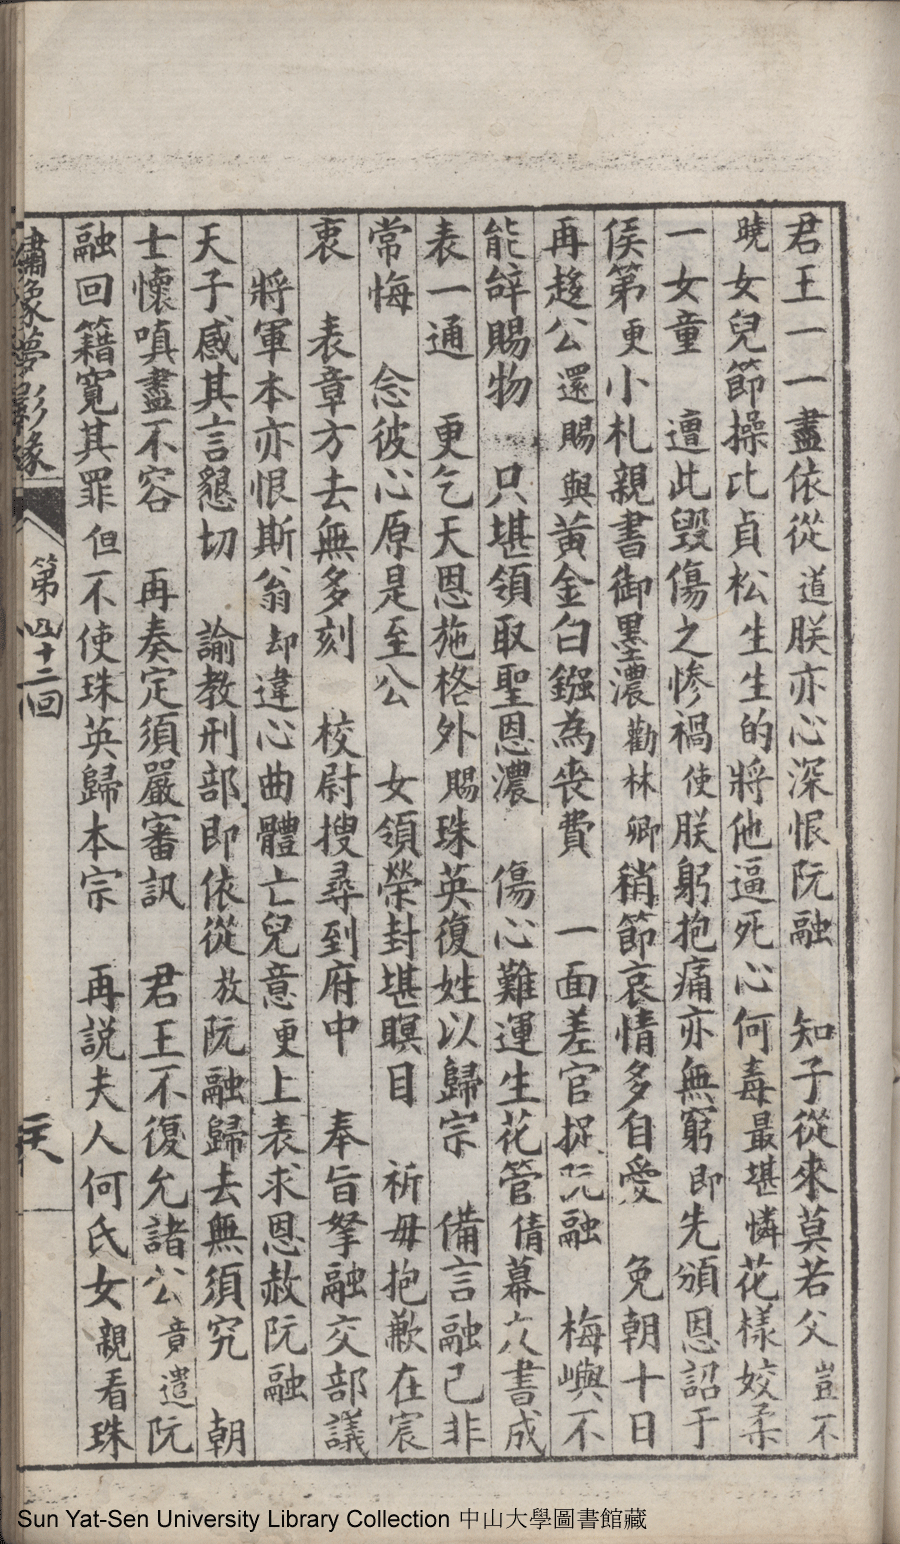 君王一一盡依從 道朕亦心深恨阮融 知子從來莫若父 豈不
曉女兒節操比貞松 生生的將他逼死心何毒 最堪憐花樣姣柔
一女童 遭此毀傷之慘禍 使朕躬抱痛亦無窮 即先頒恩詔于
侯第 更小札親書御墨濃 勸林卿稍節哀情多自愛 免朝十日
再趍公 還賜與黃金白鏹為喪費 一面差官捉阮融 梅嶼不
能辞賜物 只堪領取聖恩濃 傷心難運生花管 倩幕友書成
表一通 更乞天恩施格外 賜珠英復姓以歸宗 備言融已非
常悔 念彼心原是至公 女領榮封堪瞑目 祈毋抱歉在宸
衷 表章方去無多刻 校尉搜尋到府中 奉旨拏融交部議
將軍本亦恨斯翁 却違心曲體亡兒意 更上表求恩赦阮融
天子感其言懇切 諭教刑部即依從 放阮融歸去無須究 朝
士懷嗔盡不容 再奏定須嚴審訊 君王不復允諸公 竟遣阮
融回籍寬其罪 但不使珠英歸本宗 再説夫人何氏女 親看珠
繡像夢影緣 第四十三回